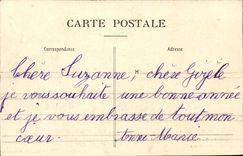 CARTE POSTALE
Correspondance
Adresse
Chère Suzanne, chère Gizèle
je vous souhaite une bonne année
et je vous embrasse de tout mon
cœur. tonne Marie